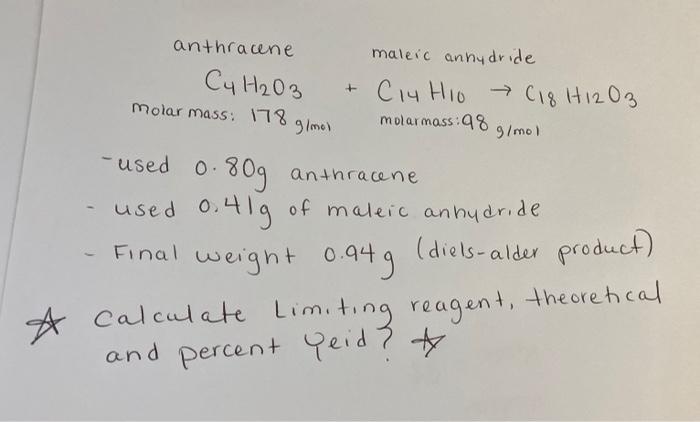 anthracene maleic anhydride
C4H2O3 + C14H10 → C18H12O3
molar mass: 178 g/mol molarmass: 98 g/mol
- used 0.80g anthracene
- used 0.41g of maleic anhydride
- Final weight 0.94g (diels-alder product)
☆ Calculate Limiting reagent, theoretical
and percent yeid? ☆